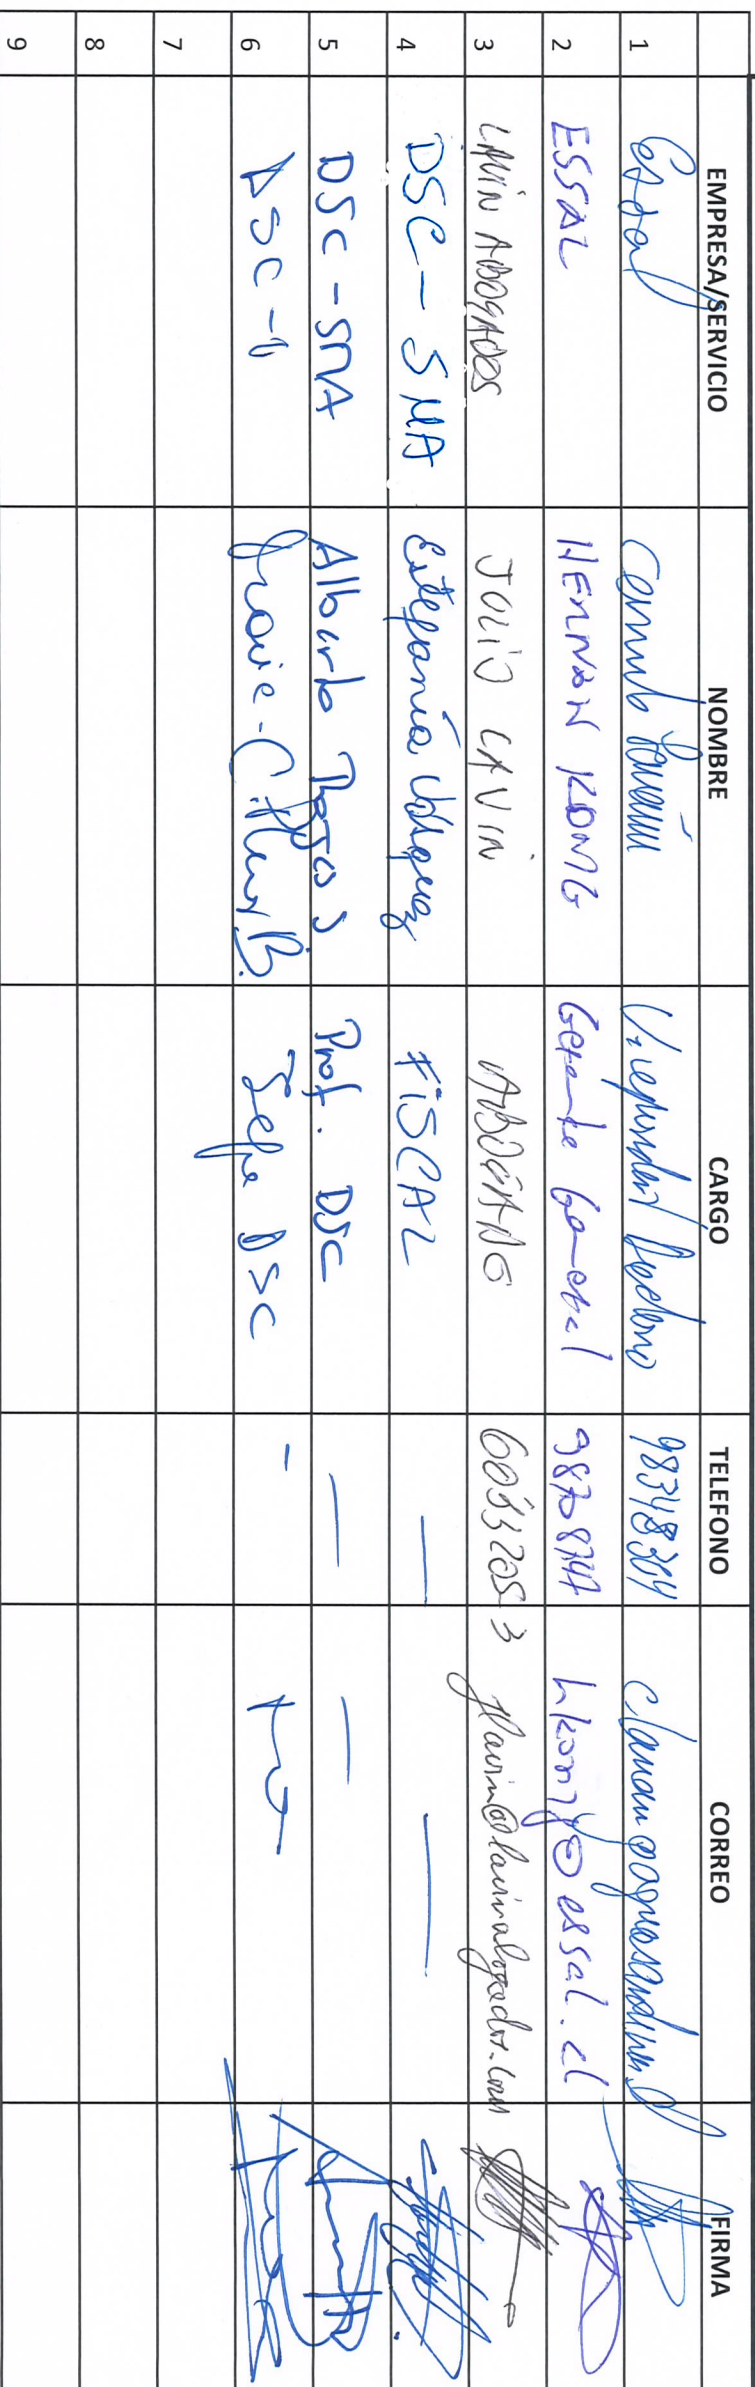 EMPRESA/SERVICIO NOMBRE CARGO TELEFONO CORREO FIRMA
1 Essal 98348364
2 ESSAL HERNAN KONIG Gerente General 98708747 hkonig@essal.cl
3 LAVIN ABOGADOS JULIO LAVIN ABOGADO 60332053 jlavin@lavinabogados.com
4 DSC - SMA Estefanía Vásquez FISCAL —
5 DSC - SMA Alberto Rojas Prof. DSC — —
6 DSC - Marie-C. Jefe DSC -
7
8
9